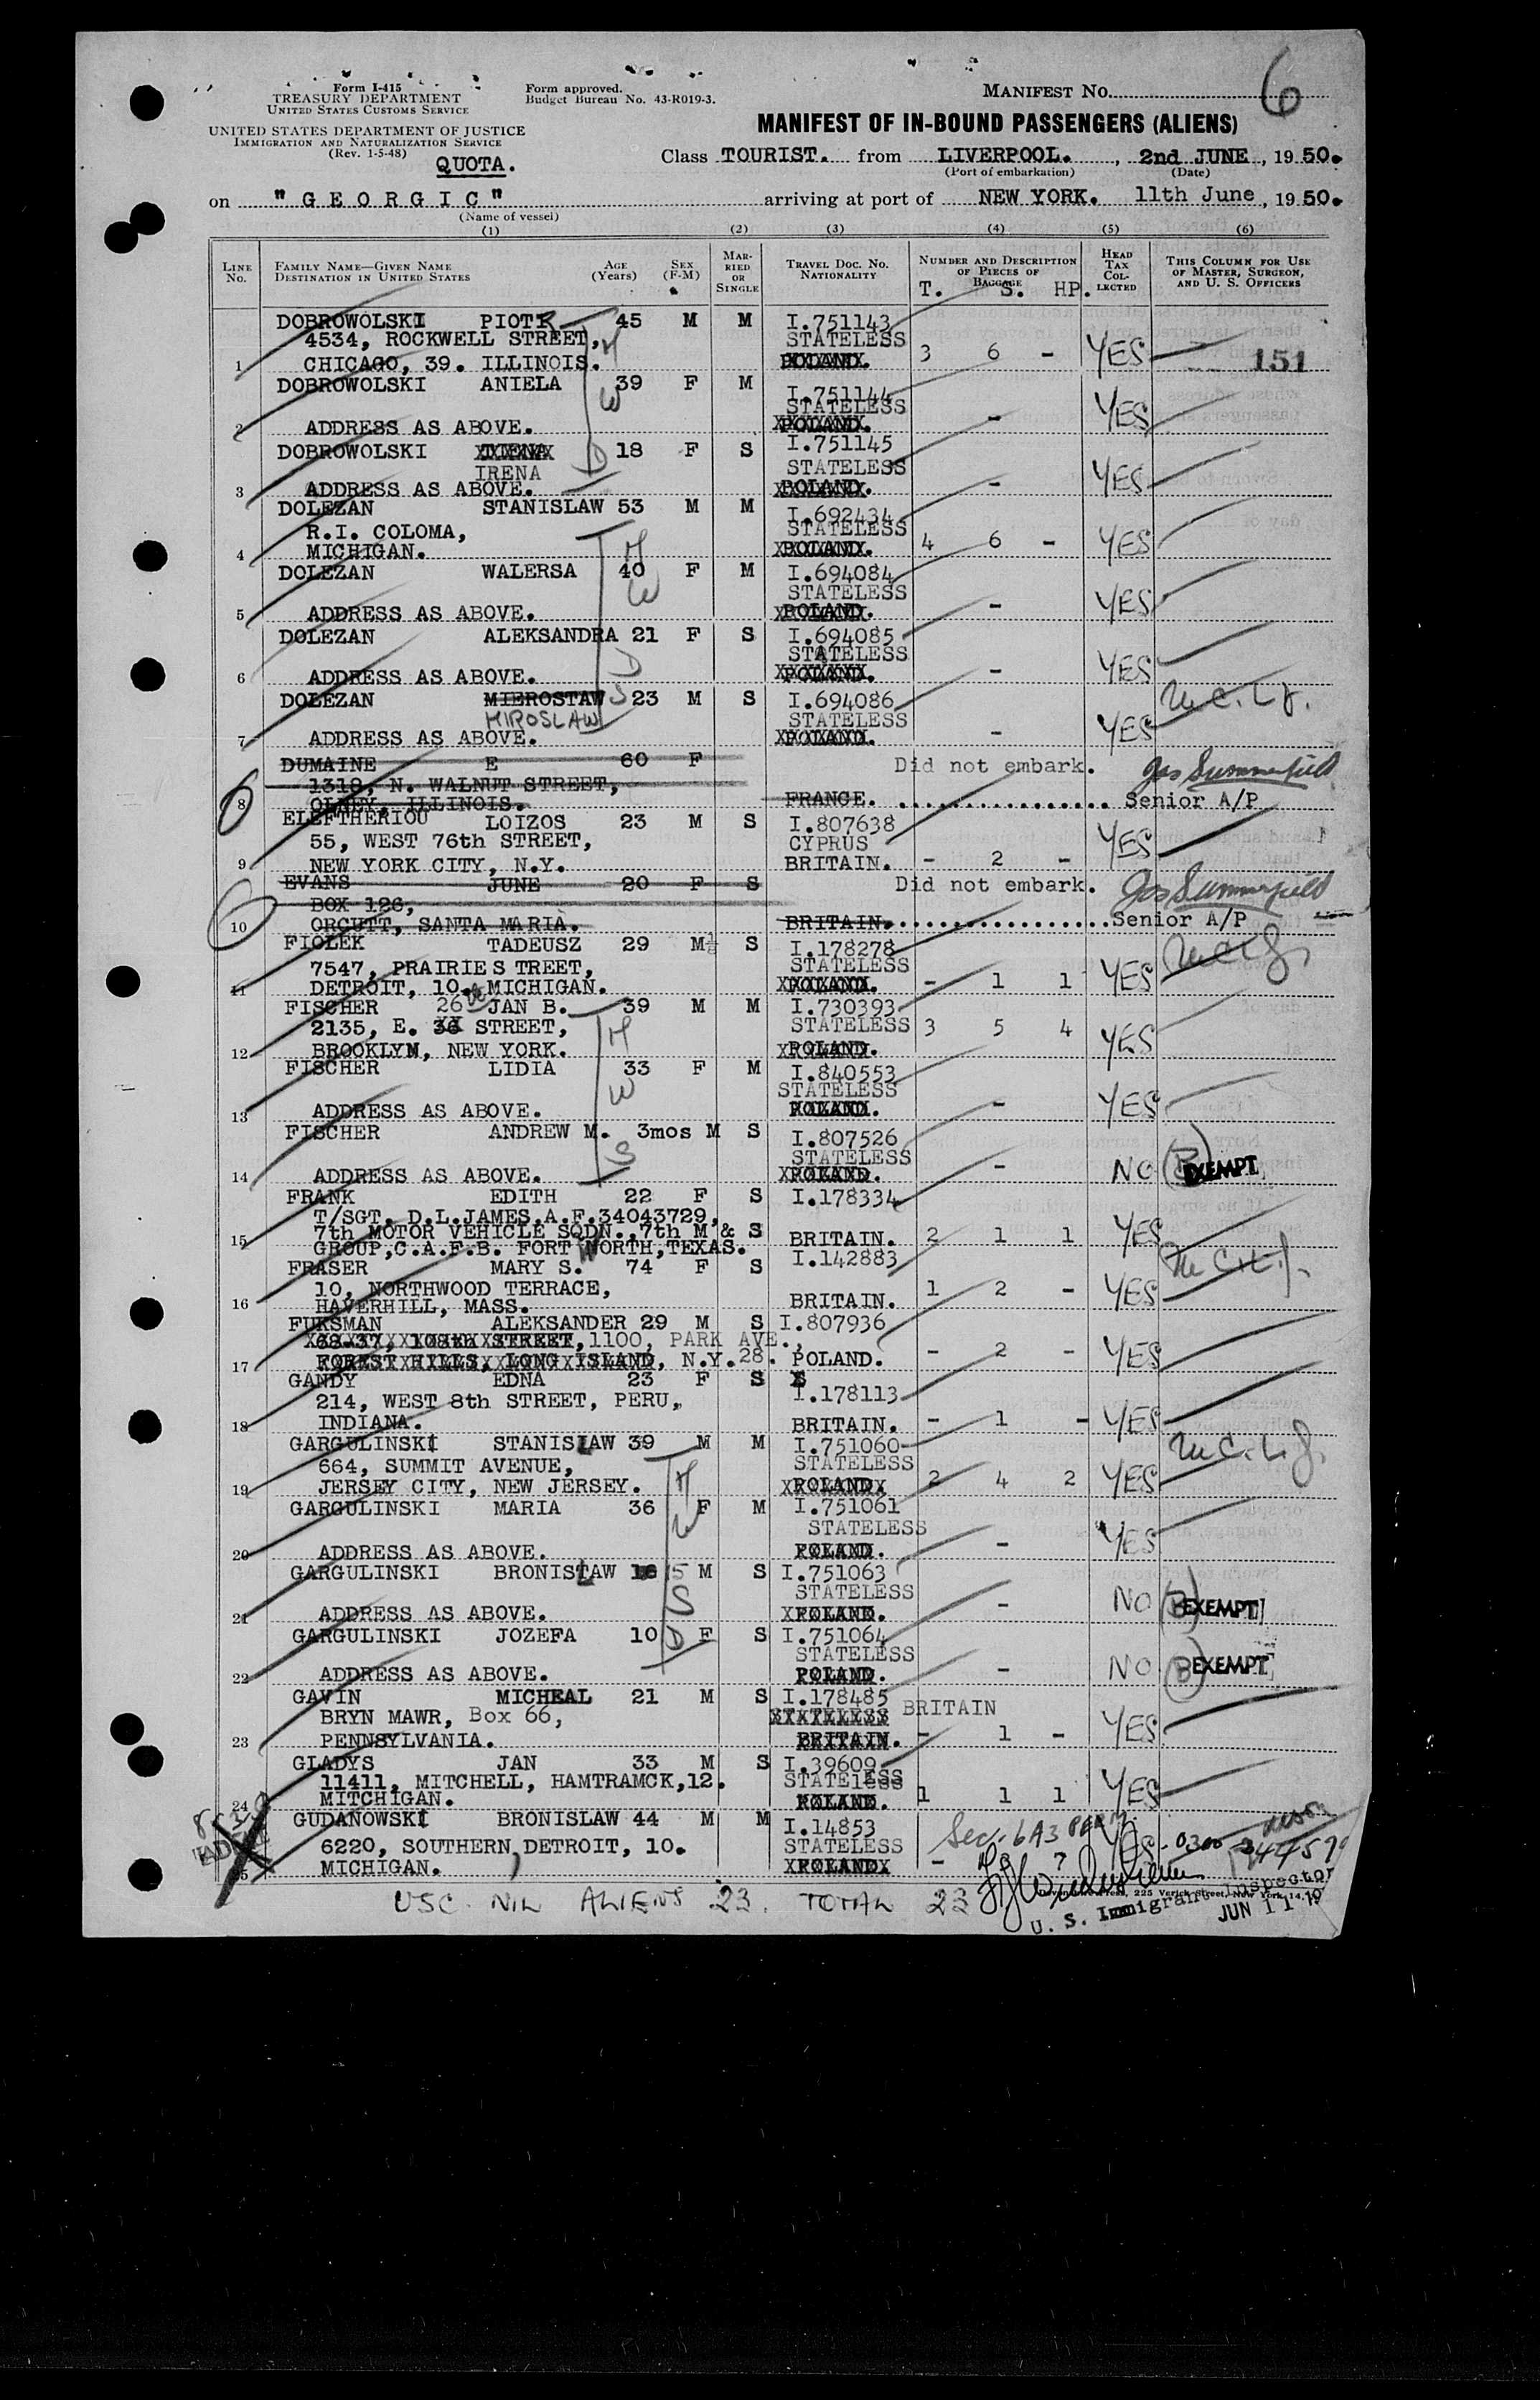 Form I-415
TREASURY DEPARTMENT
UNITED STATES CUSTOMS SERVICE
UNITED STATES DEPARTMENT OF JUSTICE
IMMIGRATION AND NATURALIZATION SERVICE
(Rev. 1-5-48)
QUOTA.
Form approved.
Budget Bureau No. 43-R019-3.
MANIFEST NO. 6
MANIFEST OF IN-BOUND PASSENGERS (ALIENS)
Class TOURIST. from LIVERPOOL., 2nd JUNE, 1950.
(Port of embarkation) (Date)
on "GEORGIC" arriving at port of NEW YORK. 11th June, 1950.
(Name of vessel)
(1) (2) (3) (4) (5) (6)
LINE No. FAMILY NAME—GIVEN NAME DESTINATION IN UNITED STATES AGE (Years) SEX (F-M) MARRIED OR SINGLE TRAVEL DOC. NO. NATIONALITY NUMBER AND DESCRIPTION OF PIECES OF BAGGAGE HEAD TAX COLLECTED THIS COLUMN FOR USE OF MASTER, SURGEON, AND U. S. OFFICERS
T. S. HP.
DOBROWOLSKI PIOTR 45 M M I.751143
4534, ROCKWELL STREET, H STATELESS
1 CHICAGO, 39. ILLINOIS. POLAND. 3 6 - YES 151
DOBROWOLSKI ANIELA 39 F M I.751144
W STATELESS
2 ADDRESS AS ABOVE. POLAND. - YES
DOBROWOLSKI 18 F S I.751145
IRENA D STATELESS
3 ADDRESS AS ABOVE. POLAND. - YES
DOLEZAN STANISLAW 53 M M I.692434
R.I. COLOMA, H STATELESS
4 MICHIGAN. POLAND. 4 6 - YES
DOLEZAN WALERSA 40 F M I.694084
W STATELESS
5 ADDRESS AS ABOVE. POLAND. - YES
DOLEZAN ALEKSANDRA 21 F S I.694085
D STATELESS
6 ADDRESS AS ABOVE. POLAND. - YES
DOLEZAN MIEROSTAW S 23 M S I.694086
MIROSLAW STATELESS
7 ADDRESS AS ABOVE. POLAND. - YES
DUMAINE E 60 F Did not embark. Jas Summerfield
1318, N. WALNUT STREET,
8 OLNEY, ILLINOIS. FRANCE. Senior A/P
ELEFTHERIOU LOIZOS 23 M S I.807638
55, WEST 76th STREET, CYPRUS
9 NEW YORK CITY, N.Y. BRITAIN. - 2 - YES
EVANS JUNE 20 F S Did not embark. Jas Summerfield
BOX 126,
10 ORCUTT, SANTA MARIA. BRITAIN. Senior A/P
FIOLEK TADEUSZ 29 M S I.178278
7547, PRAIRIE S TREET, STATELESS
11 DETROIT, 10. MICHIGAN. POLAND. - 1 1 YES
FISCHER JAN B. 39 M M I.730393
2135, E. 36 26 STREET, H STATELESS
12 BROOKLYN, NEW YORK. POLAND. 3 5 4 YES
FISCHER LIDIA 33 F M I.840553
W STATELESS
13 ADDRESS AS ABOVE. POLAND. - YES
FISCHER ANDREW M. 3mos M S I.807526
S STATELESS
14 ADDRESS AS ABOVE. POLAND. - NO B EXEMPT
FRANK EDITH 22 F S I.178334
T/SGT. D.L.JAMES,A.F.34043729,
15 7th MOTOR VEHICLE SQDN.,7th M & S BRITAIN. 2 1 1 YES
GROUP,C.A.F.B. FORT WORTH,TEXAS.
FRASER MARY S. 74 F S I.142883
10, NORTHWOOD TERRACE,
16 HAVERHILL, MASS. BRITAIN. 1 2 - YES
FUKSMAN ALEKSANDER 29 M S I.807936
68-37, 108th STREET, 1100, PARK AVE.,
17 FOREST HILLS, LONG ISLAND, N.Y.28. POLAND. - 2 - YES
GANDY EDNA 23 F S I.178113
214, WEST 8th STREET, PERU,
18 INDIANA. BRITAIN. - 1 - YES
GARGULINSKI STANISLAW 39 M M I.751060
664, SUMMIT AVENUE, H STATELESS
19 JERSEY CITY, NEW JERSEY. POLAND 2 4 2 YES
GARGULINSKI MARIA 36 F M I.751061
W STATELESS
20 ADDRESS AS ABOVE. POLAND. - YES
GARGULINSKI BRONISLAW 15 M S I.751063
S STATELESS
21 ADDRESS AS ABOVE. POLAND. - NO B EXEMPT
GARGULINSKI JOZEFA 10 D F S I.751064
STATELESS
22 ADDRESS AS ABOVE. POLAND. - NO B EXEMPT
GAVIN MICHEAL 21 M S I.178485
BRYN MAWR, Box 66, STATELESS BRITAIN
23 PENNSYLVANIA. BRITAIN. - 1 - YES
GLADYS JAN 33 M S I.39609
11411, MITCHELL, HAMTRAMCK,12. STATELESS
24 MITCHIGAN. POLAND. 1 1 1 YES
GUDANOWSKI BRONISLAW 44 M M I.14853
6220, SOUTHERN, DETROIT, 10. STATELESS Sec. 6A3
25 MICHIGAN. POLAND -
USC. NIL ALIENS 23. TOTAL 23
225 Varick Street, New York 14,
U. S. Immigrant Inspector
JUN 11 19